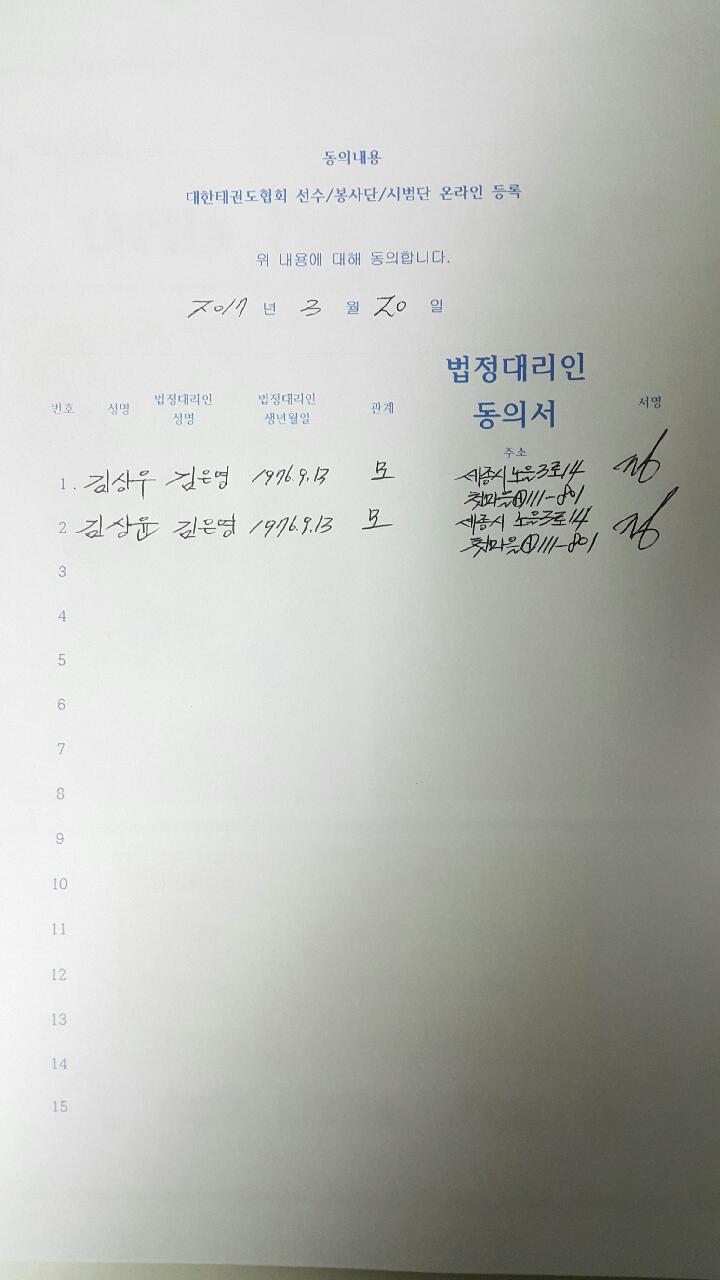 동의내용
대한태권도협회 선수/봉사단/시범단 온라인 등록
위 내용에 대해 동의합니다.
2017 년 3 월 20 일
법정대리인
동의서
번호 성명 법정대리인 성명 법정대리인 생년월일 관계 주소 서명
1. 김상우 김은영 1976.9.13 모 세종시 노을3로14
첫마을 111-801
2 김상윤 김은영 1976.9.13 모 세종시 노을3로14
첫마을 111-801
3
4
5
6
7
8
9
10
11
12
13
14
15